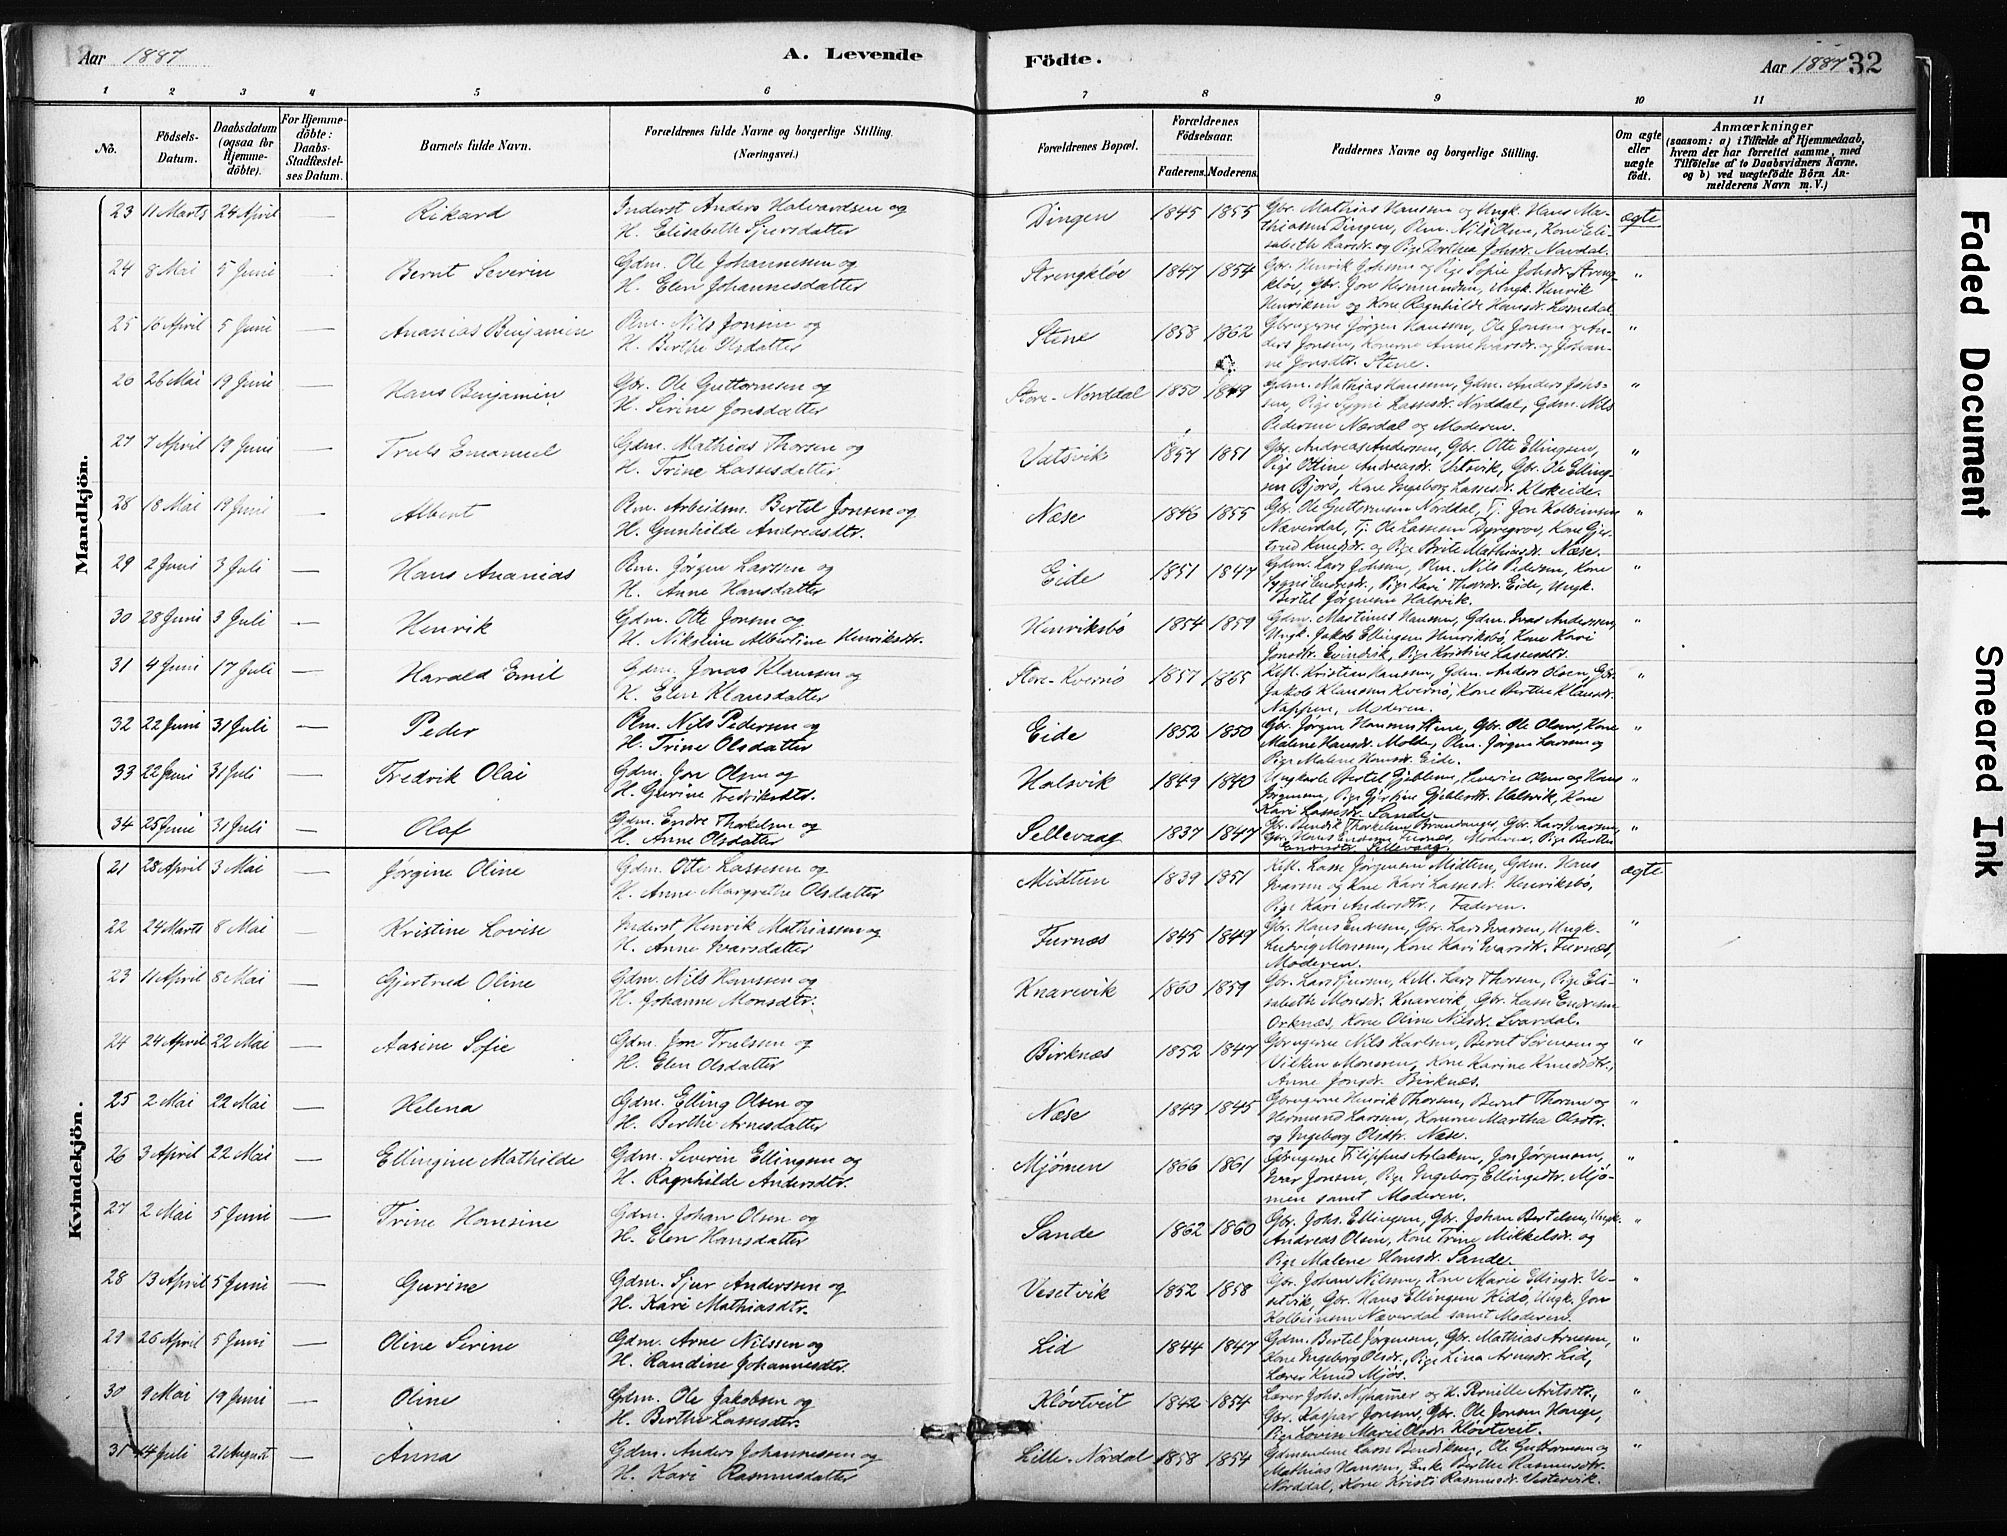 Aar 1887
A. Levende
Födte.
Aar 1887 32
1 2 3 4 5 6 7 8 9 10 11
No.
Födsels-Datum.
Daabsdatum (ogsaa for Hjemme-döbte).
For Hjemme-döbte: Daabs-Stadfæstel-ses Datum.
Barnets fulde Navn.
Forældrenes fulde Navne og borgerlige Stilling.
(Næringsvei.)
Forældrenes Bopæl.
Forældrenes Födselsaar.
Faderens. Moderens.
Faddernes Navne og borgerlige Stilling.
Om ægte eller uægte födt.
Anmærkninger
(saasom: a) i Tilfælde af Hjemmedaab, hvem der har forrettet samme, med Tilföielse af to Daabsvidners Navne, og b) ved uægtefödte Börn An-melderens Navn m. V.)
Mandkjön.
23 11 Marts 24 April — Rikard
Inderst Anders Halvardsen og
H. Elisabeth Sjursdatter
Dingen 1845 1855
Gbr. Mathias Hanssen og Ungk. Hans Ma-
thiassen Dingen, Plm. Nils Olsen, Kone Eli-
sabeth Larsdr. og Pige Dorthea Johsdr. Navrdal.
ægte
24 8 Mai 5 Juni — Bernt Severin
Gdm. Ole Johannessen og
H. Elen Johannesdatter
Strengklöv 1847 1854
Gbr. Henrik Johsen og Pige Sofie Johsdr. Streng-
klöv, Gbr. Jon Hermundsen, Ungk. Henrik
Henriksen og Kone Ragnhilde Hansdr.
"
25 16 April 5 Juni — Ananias Benjamin
Plm. Nils Jonsen og
H. Berthe Olsdatter
Stene 1858 1862
Gbrugerne Jörgen Hanssen, Ole Jonsen og An-
ders Jonsen, Konerne Anne Ivarsdr. og Johan-
ne Jonsdtr. Stene.
"
26 26 Mai 19 Juni — Hans Benjamin
Gbr. Ole Guttormsen og
H. Sirine Jonsdatter
Store-Norddal 1850 1849
Gdm. Mathias Hanssen, Gdm. Anders Johs-
sen, Pige Sygni Lassesdr. Norddal, Gdm. Nils
Pedersen Nordal og Moderen.
"
27 7 April 19 Juni — Truls Emanuel
Gdm. Mathias Thorsen og
H. Trine Lassesdatter
Vatsvik 1857 1851
Gbr. Andreas Andersen, Gbr. Otte Ellingsen,
Pige Ottine Andreasdr. Vatsvik, Gbr. Ole Elling-
sen Bjorö, Kone Ingeborg Lassesdr. Klokeide.
"
28 18 Mai 19 Juni — Albert
Plm. Arbeidsm. Bertel Jonsen og
H. Gunhilde Andreasdtr.
Næse 1846 1855
Gbr. Ole Guttormsen Norddal, Tj. Jon Kolbeinsen
Næverdal, Tj. Ole Lassesen Dyregrov, Kone Gjer-
trud Knudsdr. og Pige Brite Mathiasdr. Næse.
"
29 2 Juni 3 Juli — Hans Ananias
Plm. Jörgen Larsen og
H. Anne Hansdatter
Eide 1851 1847
Gdm. Lars Johsen, Plm. Nils Pedersen, Kone
Sygni Endresdr., Pige Kari Thorsdr. Eide, Ungk.
Bertel Jörgensen Halsvik.
"
30 28 Juni 3 Juli — Henrik
Gdm. Otte Jonsen og
H. Nikoline Albertine Henriksdtr.
Henriksbö 1854 1859
Gdm. Martinus Hanssen, Gdm. Ivar Andersen,
Ungk. Jakob Ellingsen Henriksbö, Kone Kari
Jonsdtr. Evindvik, Pige Kristine Lassesdtr.
"
31 4 Juni 17 Juli — Harald Emil
Gdm. Jonas Klaussen og
H. Elen Klausdatter
Store-Kvernö 1857 1865
Kaft. Kristian Hanssen, Gdm. Anders Olsen, Gbr.
Jakob Klaussen Kvernö, Kone Berthe Klausdr.
Nappen, Moderen.
"
32 22 Juni 31 Juli — Peder
Plm. Nils Pedersen og
H. Trine Olsdatter
Eide 1852 1850
Gbr. Jörgen Hanssen Stene, Gbr. Ole Olsen, Kone
Malene Hansdr. Molde, Plm. Jörgen Larsen og
Pige Malene Hansdr. Eide.
"
33 22 Juni 31 Juli — Fredrik Olai
Gdm. Jon Olsen og
H. Gurine Fredriksdtr.
Halsvik 1849 1840
Ungkarle Bertel Gjeblesen, Severin Olsen og Hans
Jörgensen, Pige Gjertine Gjeblesdr. Halsvik, Kone
Kari Lassesdr. Sande.
"
34 25 Juni 31 Juli — Olaf
Gdm. Endre Thorkelsen og
H. Anne Olsdatter
Sellevaag 1837 1847
Gbr. Bendik Thorkelsen Brandanger, Gbr. Lars Ivarsen,
Gbr. Hans Endresen Furnæs, Moderen, Pige Berthe
Endresdr. Sellevaag.
"
Kvindekjön.
21 28 April 3 Mai — Jörgine Oline
Gdm. Otte Lassesen og
H. Anne Margrethe Olsdatter
Midtun 1839 1851
Kaft. Lasse Jörgensen Midtun, Gdm. Hans
Ivarsen og Kone Kari Lassesdr. Henriksbö,
Pige Kari Andersdtr., Faderen.
ægte
22 24 Marts 8 Mai — Kristine Lovise
Inderst Henrik Mathiassen og
H. Anne Ivarsdatter
Furnæs 1845 1849
Gbr. Hans Endresen, Gbr. Lars Ivarsen, Ungk.
Ludvig Monsen, Kone Kari Ivarsdtr. Furnæs,
Moderen.
"
23 11 April 8 Mai — Gjertrud Oline
Gdm. Nils Hanssen og
H. Johanne Monsdtr.
Knarevik 1860 1859
Gbr. Lars Sjursen, K.M. Lars Thorsen, Pige Eli-
sabeth Monsdr. Knarevik, Gbr. Lasse Endresen
Orknæs, Kone Oline Nilsdr. Svardal.
"
24 24 April 22 Mai — Aasine Sofie
Gdm. Jon Trulssen og
H. Elen Olsdatter
Birknæs 1852 1847
Gbrugerne Nils Karlsen, Bernt Sörensen og
Vilken Monsen, Kone Karine Knudsdtr.,
Anne Jonsdr. Birknæs.
"
25 2 Mai 22 Mai — Helena
Gdm. Elling Olsen og
H. Berthe Arnesdatter
Næse 1849 1845
Gbrugerne Henrik Thorsen, Bernt Thorsen og
Hermund Larsen, Konerne Martha Olsdtr.
og Ingeborg Olsdtr. Næse.
"
26 3 April 22 Mai — Ellingine Mathilde
Gdm. Severin Ellingsen og
H. Ragnhilde Andersdtr.
Mjömen 1866 1861
Gbrugerne Filippus Aslaksen, Jon Jörgensen,
Ivar Jonsen, Pige Ingeborg Ellingsdtr. Mjö-
men samt Moderen.
"
27 2 Mai 5 Juni — Trine Hansine
Gdm. Johan Olsen og
H. Elen Hansdatter
Sande 1862 1860
Gbr. Johs. Ellingsen, Gbr. Johan Bertelsen, Ungk.
Andreas Olsen, Kone Trine Mikkelsdr. og
Pige Malene Hansdr. Sande.
"
28 13 April 5 Juni — Gurine
Gdm. Sjur Anderssen og
H. Kari Mathiasdtr.
Vesetvik 1852 1858
Gbr. Johan Nilssen, Kone Marie Ellingsdr. Ve-
setvik, Gbr. Hans Ellingsen Hidö, Ungk. Jon
Kolbeinsen Næverdal samt Moderen.
"
29 26 April 5 Juni — Oline Sirine
Gdm. Arne Nilssen og
H. Randine Johannesdtr.
Lid 1844 1847
Gdm. Bertel Jörgensen, Gbr. Mathias Arnesen,
Kone Ingeborg Olsdr., Pige Lina Arnesdr. Lid,
Lærer Knud Mjös.
"
30 9 Mai 19 Juni — Oline
Gdm. Ole Jakobsen og
H. Berthe Lassesdtr.
Klövtveit 1842 1854
Lærer Johs. Nyhammer og H. Pernille
Gbr. Kaspar Jonsen, Gbr. Ole Jonsen Hauge,
Pige Lovise Marie Olsdr. Klövtveit.
"
31 14 Juli 21 August — Anna
Gdm. Anders Johannessen og
H. Kari Rasmusdatter
Lille-Nordal 1858 1854
Gdmændene Lasse Bendiksen, Ole Guttormsen og
Mathias Hanssen, Enke Berthe Rasmusdtr.
Norddal, Kone Kristi Rasmusdr. Vestervik.
"
Faded Document
Smeared Ink